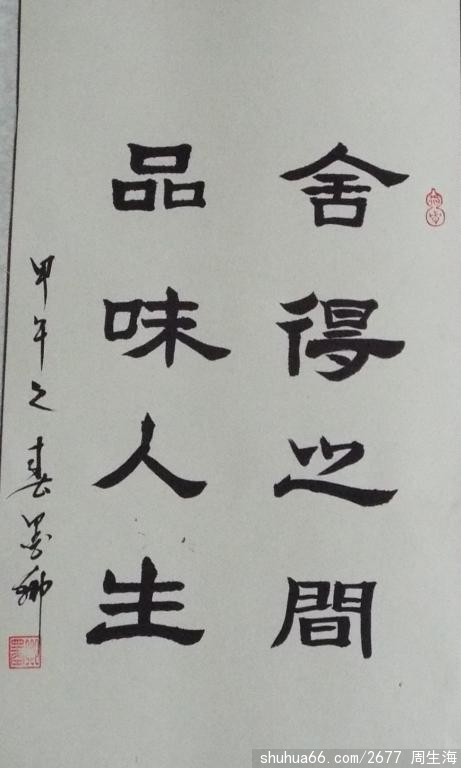 舍得之間
品味人生
甲午之春
shuhua66.com/2677 周生海